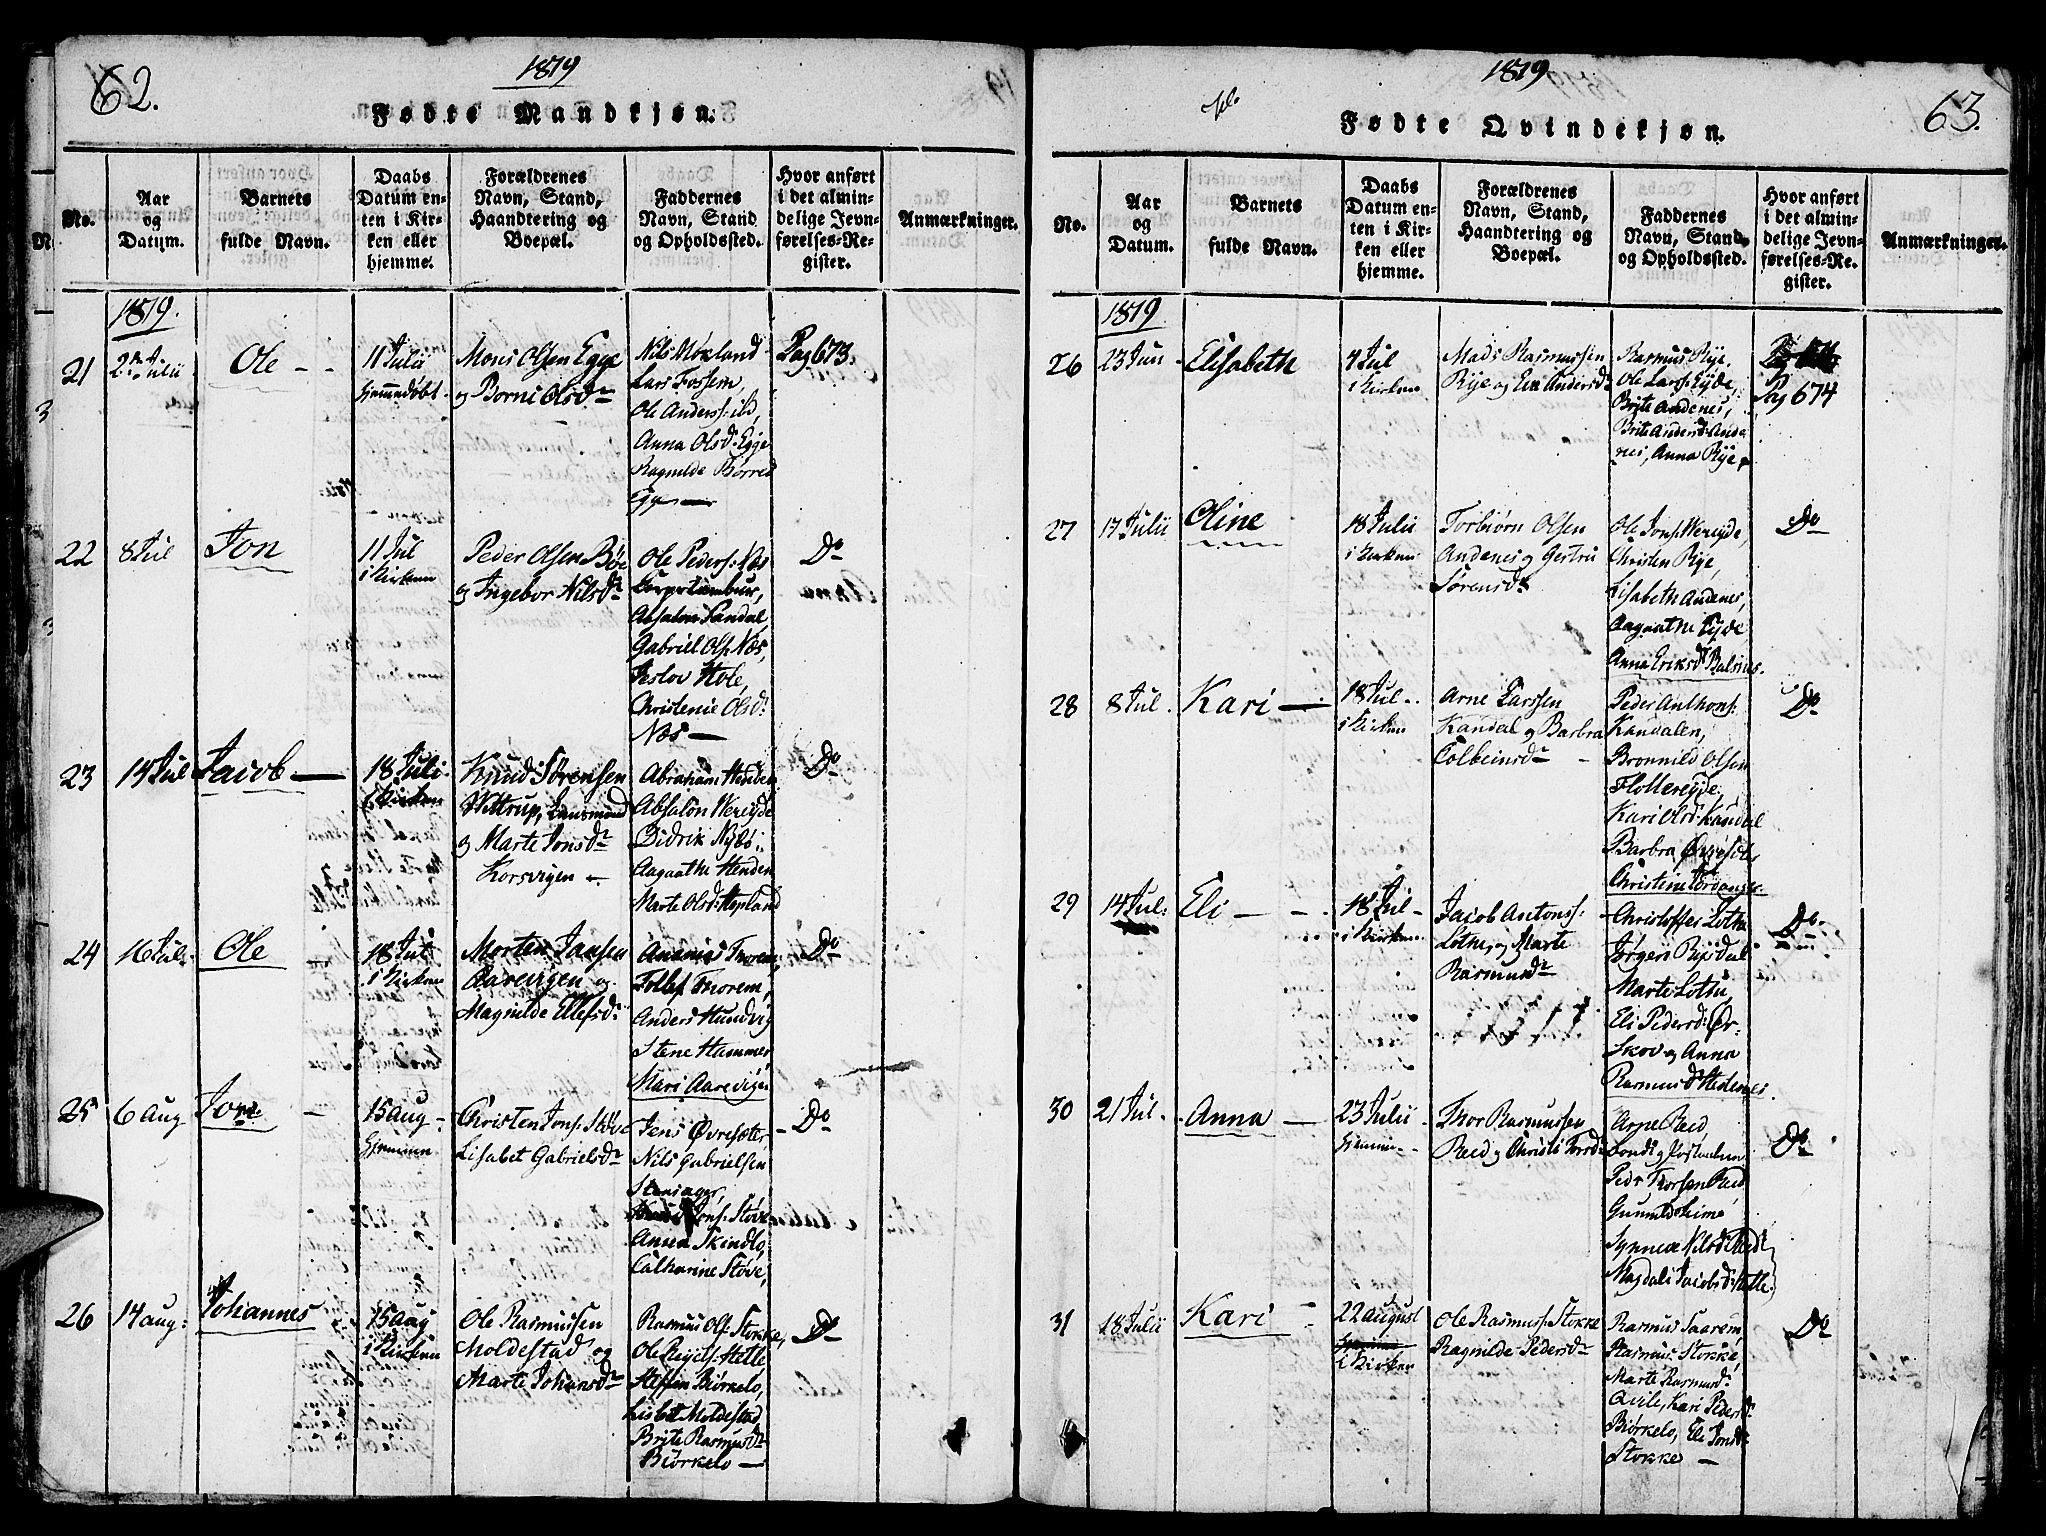 62.
1819
Fødte Mandkjøn.
No.
Aar
og
Datum.
Barnets
fulde Navn.
Daabs
Datum en-
ten i Kir-
ken eller
hjemme.
Forældrenes
Navn, Stand,
Haandtering og
Boepæl.
Faddernes
Navn, Stand
og Opholdssted.
Hvor anført
i det almin-
delige Jevn-
førelses-Re-
gister.
Anmærkninger.
1819.
21
2 Julii
Ole
11 Julii
hjemmedøbt
Mons Olsen Egge
og Borni Olsdr
Nils Moxland
Lars Fossem,
Ole Anders:
Anna Olsd: Egge
Ragnilde
Egge
Pag 673.
22
8 Jul
Jon
11 Jul
i Kirken
Peder Olsen Bøe
og Ingebor Nilsdr
Ole Peders: Næs
Absalon Sandal,
Gabriel Ols: Næs,
Hole,
Christenie Olsd:
Næs
Do
23
14 Jul
Jacob
18 Juli
i Kirken
Knud Sørensen
Wittrup, Lensmand
og Marte Jonsdr
Korsvigen
Abraham Henden
Absalon Wereyde
Didrik Nybø
Aagaathe Henden
Marte Olsd: Hepland
Do
24
16 Jul:
Ole
18 Jul
i Kirken
Morten Jansen
Aarevigen og
Magnilde Ellefsd:
Ananias Thorem,
Tollef Thorem,
Anders Hundvig
Stene Hammer
Mari Aarevigen
Do
25
6 Aug
Jon
15 Aug
Hjemmen
Christen Jons: Støve
Lisabet Gabrielsdr
Jens Øvresæter
Nils Gabrielsen
Steniager,
Jons: Støve
Anna Skindlo,
Catharine Støve,
Do
26
14 Aug:
Johannes
15 Aug
i Kirken
Ole Rasmussen
Moldestad og
Marte Johansdr
Rasmus Ols: Stokke,
Ole Helle
Steffen Biørkelo,
Lisbet Moldestad
Brite Rasmusdr
Biørkelo
Do
63.
1819
Fødte Qvindekjøn.
No.
Aar
og
Datum.
Barnets
fulde Navn.
Daabs
Datum en-
ten i Kir-
ken eller
hjemme.
Forældrenes
Navn, Stand,
Haandtering og
Boepæl.
Faddernes
Navn, Stand
og Opholdssted.
Hvor anført
i det almin-
delige Jevn-
førelses-Re-
gister.
Anmærkninger.
1819
26
23 Jun
Elisabeth
4 Jul
i Kirken
Mads Rasmussen
Rye og Eva Andersdr
Rasmus Rye,
Ole Lars: Eyde,
Brite Andenes,
Brite Andersd: Ande
nes, Anna Rye
Pag 674
27
17 Julii
Oline
18 Julii
i Kirken
Torbiørn Olsen
Andenes og Gertru
Sørensdr
Ole Jons: Wereyde,
Christen Rye,
Lisabeth Andenes,
Aagaathe Eyde
Anna Eriksdr
Do
28
8 Jul
Kari
18 Jul
i Kirken
Arne Larssen
Kandal og Barbra
Colbeinsdr
Peder Anthons:
Kandalen,
Bronnild Olsen
Flottereyde,
Kari Olsd: Kandal
Barbra
Christine
Do
29
14 Jul:
Eli
18 Jul
i Kirken
Jacob Antons:
Lothe, og Marte
Rasmusdr
Christoffer Lothe
Jørgen
Marte Lothe,
Eli Pedersd: Ør-
skov og Anna
Rasmusdr Hedenes.
Do
30
21 Jul
Anna
23 Julii
Hjemme
Thor Rasmussen
Reed og Christi Torsdr
Arne Reed
Peder Thorsen Reed
Synneve Nilsd: Reed
Magdali Jacobsd: Helle
Do
31
18 Julii
Kari
22 August
i Kirken
Ole Rasmus: Stokke
Ragnilde Pedersdr
Rasmus Saarem
Rasmus Stokke,
Marte Rasmusd:
Qvile, Kari Pedersd:
Biørkelo, Eli Jonsdr
Stokke
Do